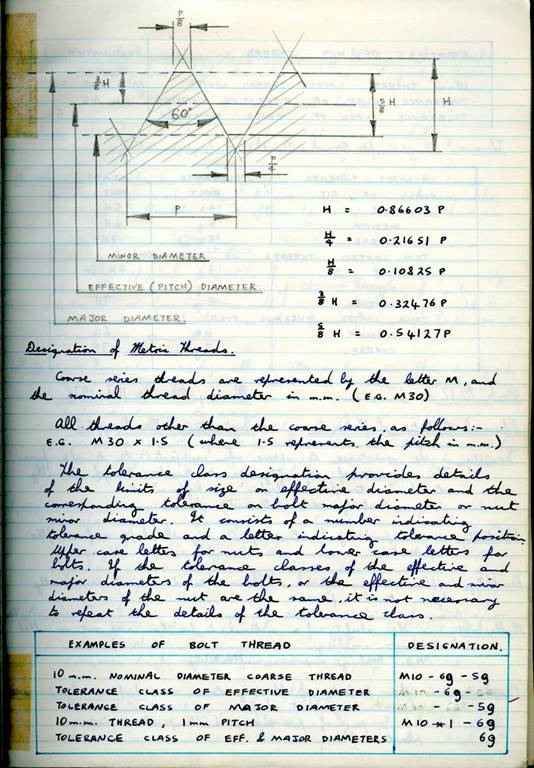 P/8
3/8 H
60°
5/8 H
H
P/4
P
MINOR DIAMETER
EFFECTIVE (PITCH) DIAMETER
MAJOR DIAMETER
H = 0.86603 P
H/4 = 0.21651 P
H/8 = 0.10825 P
3/8 H = 0.32476 P
5/8 H = 0.54127 P
Designation of Metric Threads.
Coarse series threads are represented by the letter M, and
the nominal thread diameter in m.m. (E.G. M30)
All threads other than the coarse series, as follows:-
E.G. M30 x 1.5 (where 1.5 represents the pitch in m.m.)
The tolerance class designation provides details
of the limits of size on effective diameter and the
corresponding tolerance on bolt major diameter or nut
minor diameter. It consists of a number indicating
tolerance grade and a letter indicating tolerance position,
Upper case letters for nuts and lower case letters for
bolts. If the tolerance classes of the effective and
major diameters of the bolts, or the effective and minor
diameters of the nut are the same, it is not necessary
to repeat the details of the tolerance class.
EXAMPLES OF BOLT THREAD DESIGNATION.
10 m.m. NOMINAL DIAMETER COARSE THREAD M10 - 6g - 5g
TOLERANCE CLASS OF EFFECTIVE DIAMETER - 6g -
TOLERANCE CLASS OF MAJOR DIAMETER - 5g
10 m.m. THREAD, 1mm PITCH M10 x 1 - 6g
TOLERANCE CLASS OF EFF. & MAJOR DIAMETERS 6g